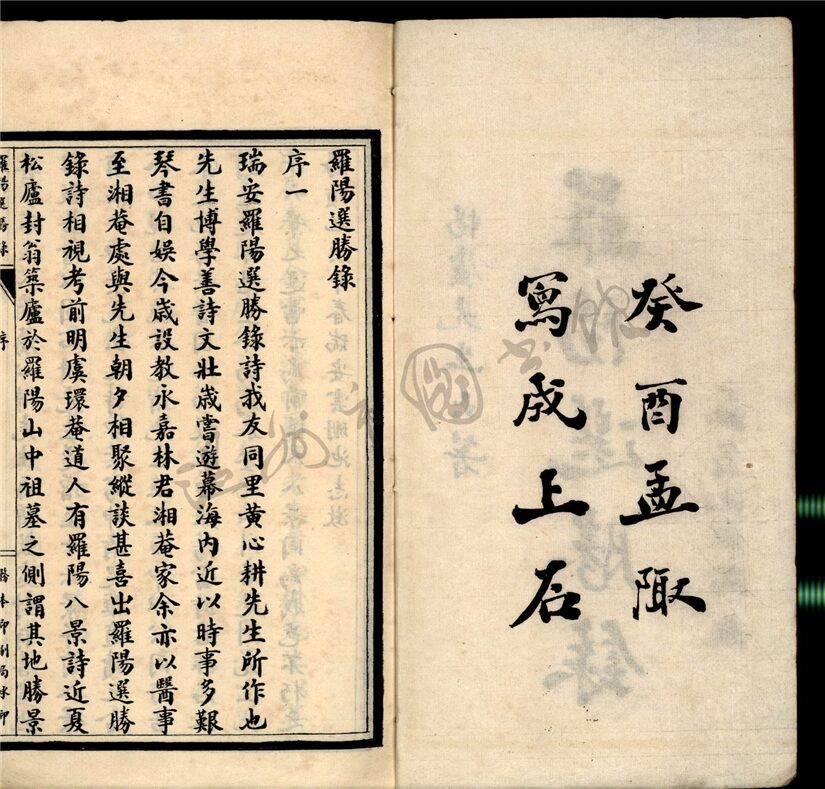 癸酉孟陬
寫成上石
羅陽選勝錄
序一
瑞安羅陽選勝錄詩我友同里黄心耕先生所作也
先生博學善詩文壯嵗嘗遊幕海内近以時事多艱
琴書自娱今嵗設教永嘉林君湘菴家余亦以醫事
至湘菴處與先生朝夕相聚縱談甚喜出羅陽選勝
錄詩相視考前明虞環菴道人有羅陽八景詩近夏
松廬封翁築廬於羅陽山中祖墓之側謂其地勝景
羅陽選勝錄
序
務本印刷局承印